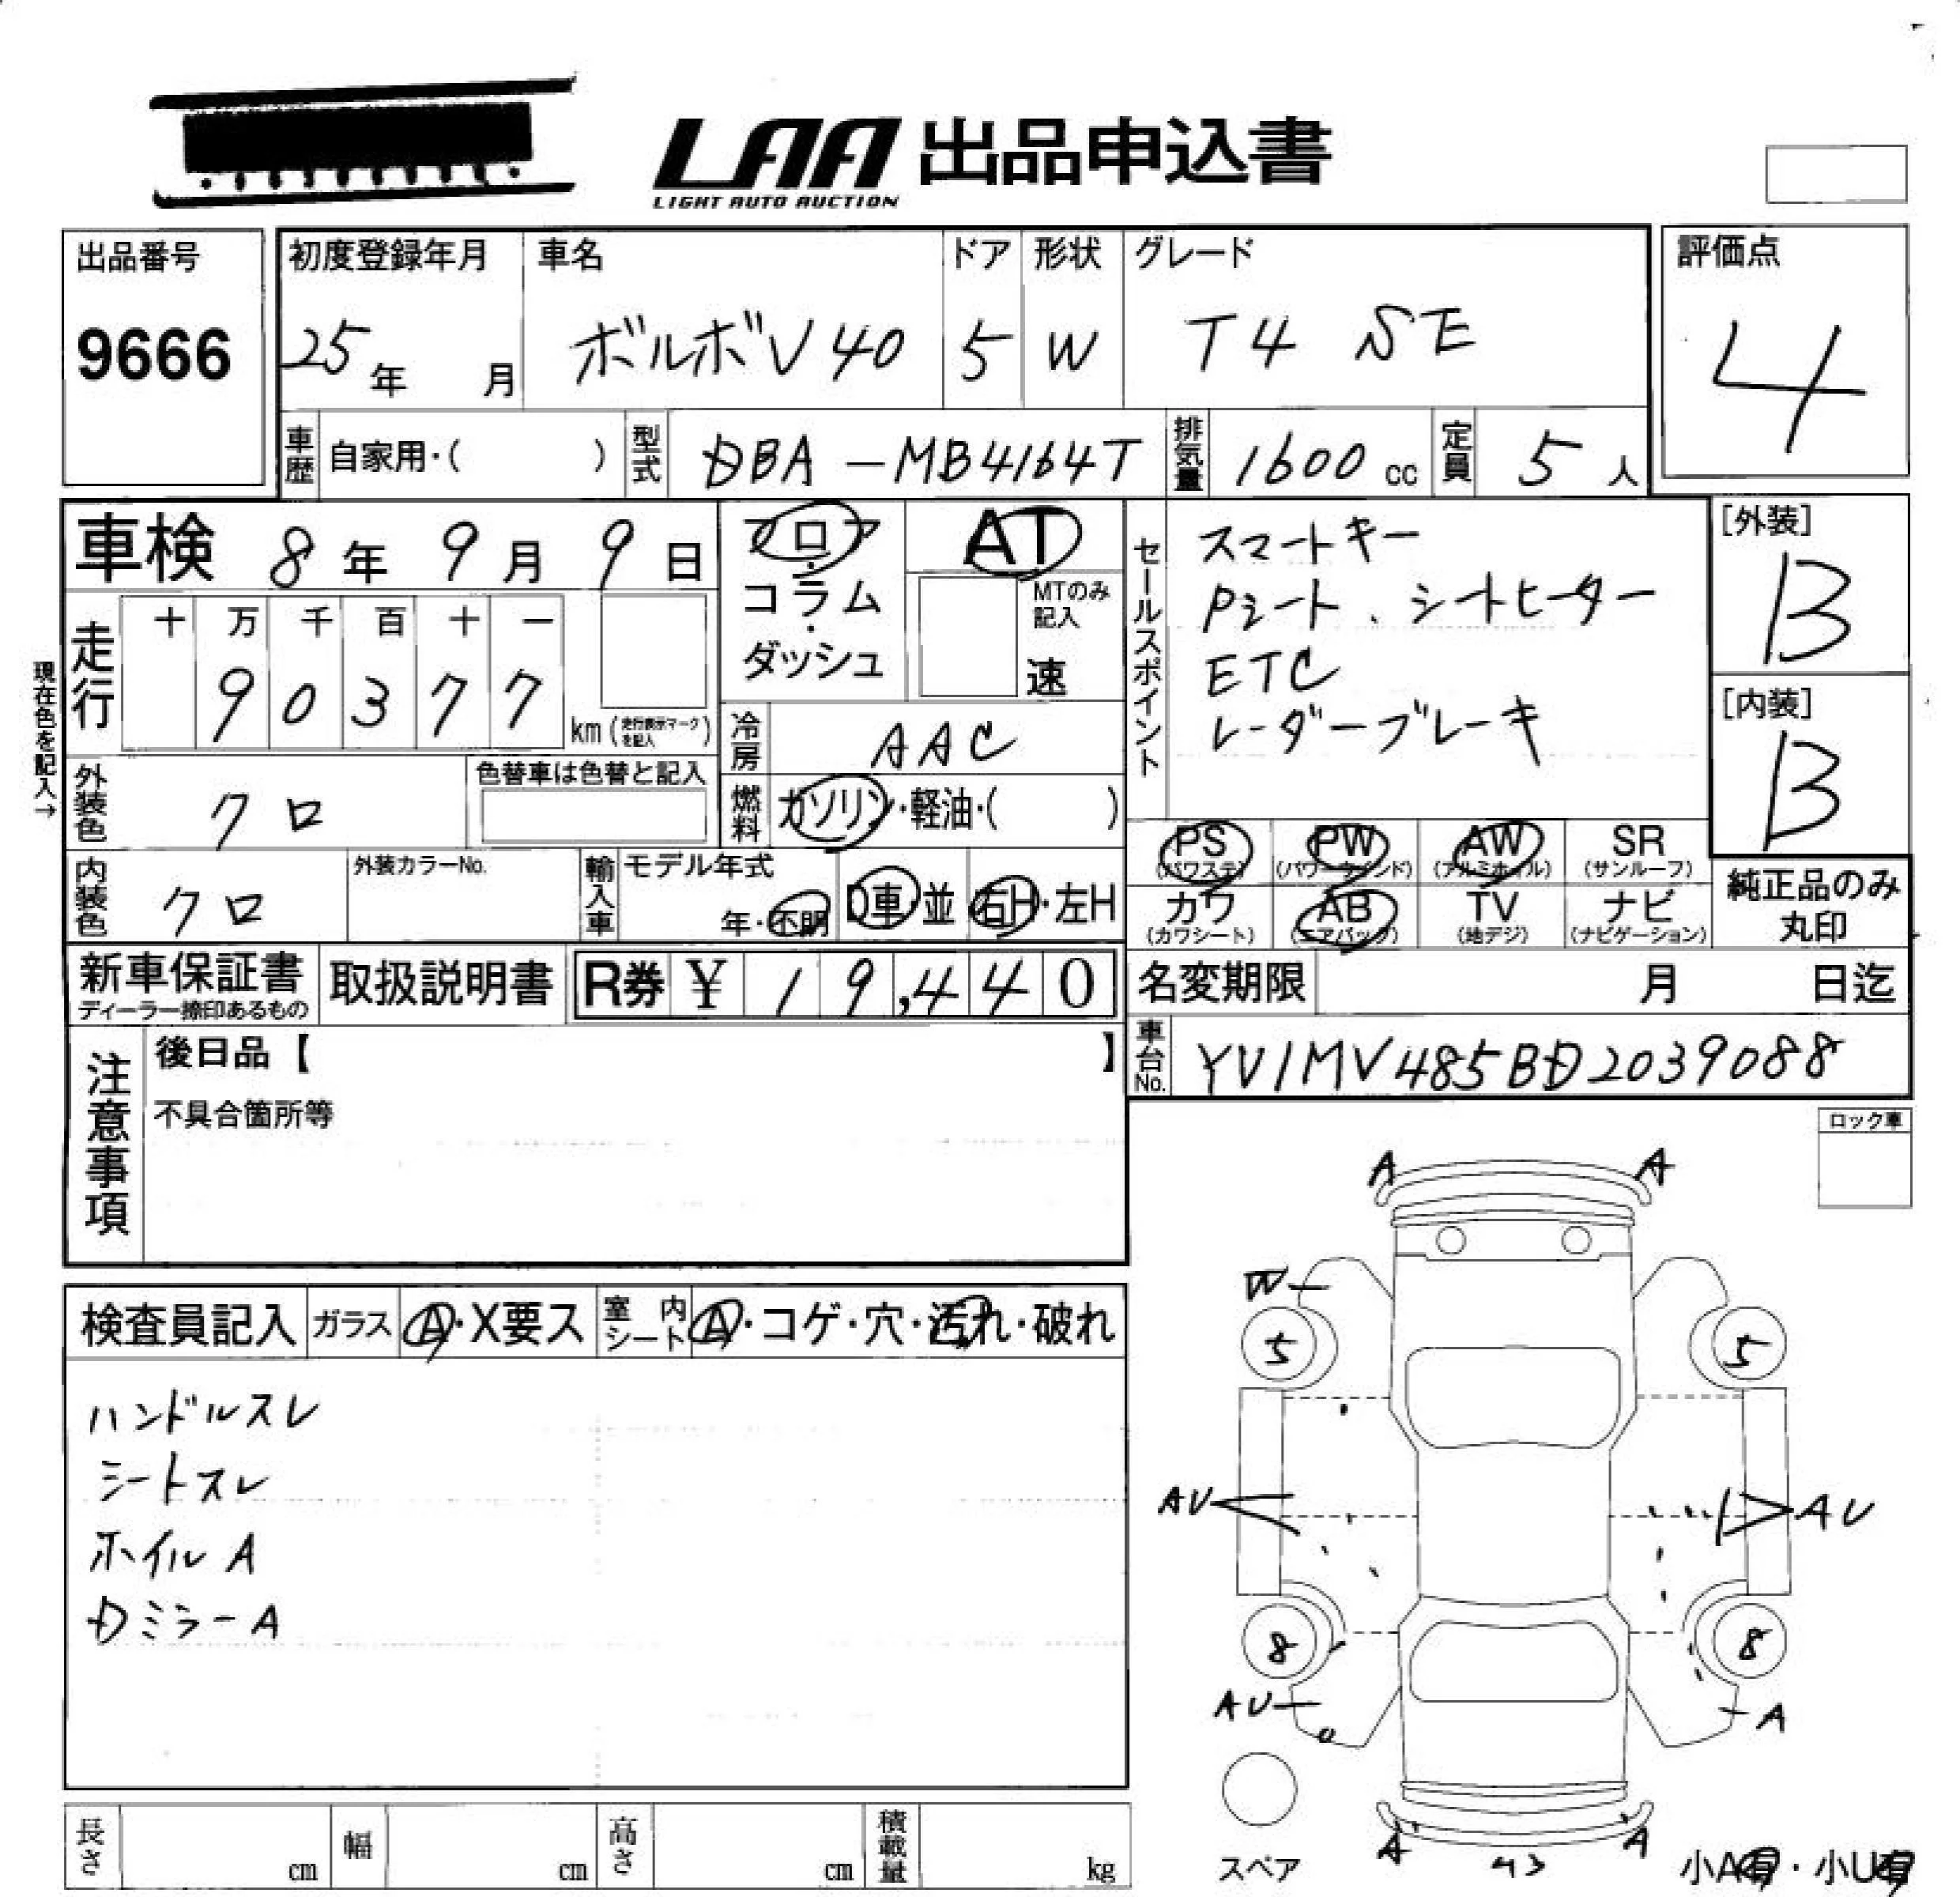 LAA 出品申込書
LIGHT AUTO AUCTION
出品番号
9666
初度登録年月
25年 月
車名
ボルボV40
ドア
5
形状
W
グレード
T4 SE
評価点
4
車歴 自家用・( )
型式 DBA-MB4164T
排気量 1600cc
定員 5人
車検 8年9月9日
フロア
コラム
ダッシュ
AT
MTのみ
記入
速
セールスポイント
スマートキー
Pシート、シートヒーター
ETC
レーダーブレーキ
[外装]
B
[内装]
B
現在色を記入→
走行
十 万 千 百 十 一
9 0 3 7 7
km(走行表示マークを記入)
冷房 AAC
外装色 クロ
色替車は色替と記入
燃料 ガソリン・軽油・( )
PS AW PW SR
(パワステ) (パワーウインド) (アルミホイル) (サンルーフ)
カワ AB TV ナビ
(カワシート) (エアバック) (地デジ) (ナビゲーション)
純正品のみ
丸印
内装色 クロ
外装カラーNo.
輸入車 モデル年式
年・不明
D車・並 右H・左H
新車保証書
ディーラー捺印あるもの
取扱説明書
R券 ¥ 19,440
名変期限 月 日迄
車台No. YV1MV485BD2039088
注意事項
後日品【 】
不具合箇所等
ロック車
検査員記入 ガラス A・X要ス 室内シート A・コゲ・穴・汚れ・破れ
ハンドルスレ
シートスレ
ホイルA
DミラーA
A A
W
5 5
AU AU
8 8
AU A
スペア
A A
小A有・小U有
長さ cm 幅 cm 高さ cm 積載量 kg